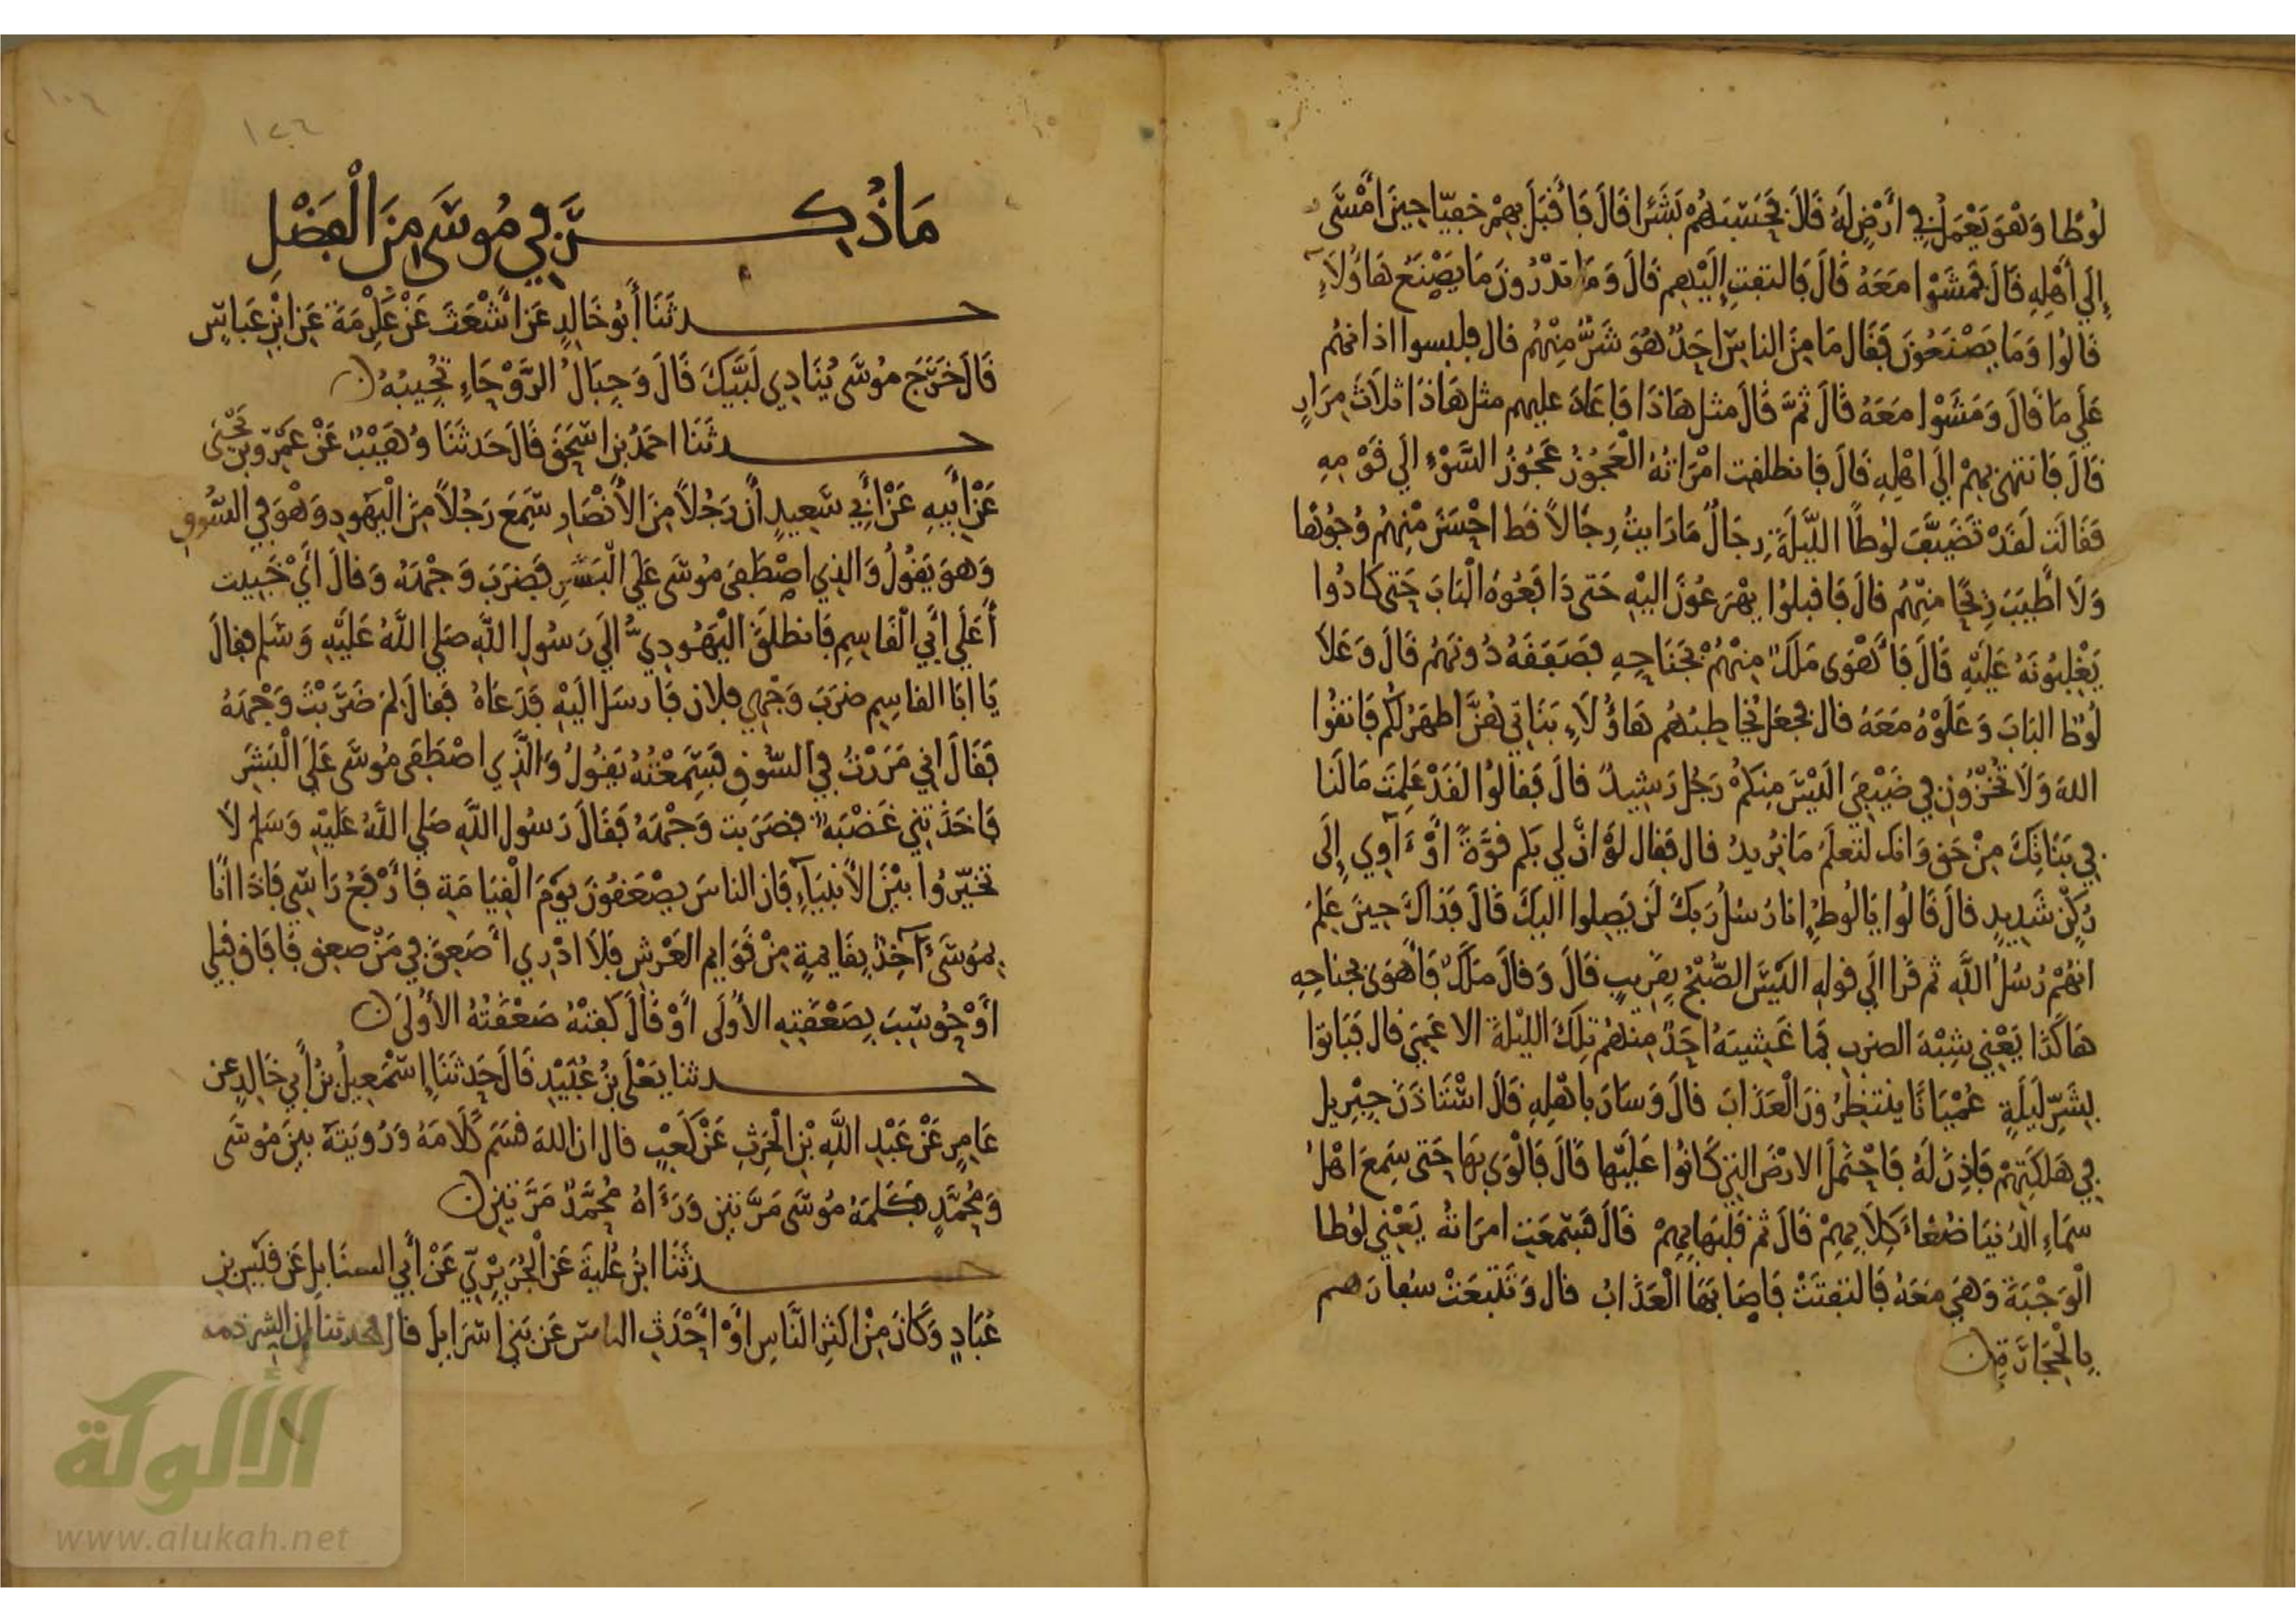 لُوطًا وَهْوَ يَعْمَلُ فِي أَرْضٍ لَهُ قَالَ فَحَسِبَهُمْ بَشَرًا قَالَ فَأَقْبَلَ بِهِمْ خَفِيًّا حِينَ أَمْسَى
إِلَى أَهْلِهِ قَالَ فَمَشَوْا مَعَهُ قَالَ فَالتفت إِلَيْهِم قَالَ وَمَا تدْرُونَ مَا يَصْنَعُ هَاؤُلَاءِ
قَالُوا وَمَا يَصْنَعُونَ فَقَال مَا مِنَ الناسِ أحَدٌ هُوَ شَرٌّ مِنْهُم قال فلبسوا اذانهُم
عَلَى مَا قَالَ وَمَشَوْا مَعَهُ قَالَ ثمَّ قَالَ مثل هَاذَا فَاعَادَ عليهم مثل هَاذَا ثلَاثَ مِرَارٍ
قَالَ فَانتهى بِهِمْ إلَى اهْلِهِ قَالَ فَانطلقت امْرَاتهُ الْعَجُوزُ عَجُوزُ السَّوْءِ الَى قَوْمِهِ
فَقَالَت لَقَدْ تَضَيَّفَ لُوطًا اللَّيْلَةَ رِجَالٌ مَا رَايتُ رِجَالاً قَط احْسَنَ مِنْهُم وُجُوهًا
وَلَا أَطْيَبَ رِيحًا مِنْهُم قالَ فَاقبلُوا يهْرَعُونَ اليْهِ حَتى دَافَعُوهُ الْبَابَ حَتى كَادُوا
يَغْلِبُونَهُ عَلَيْهِ قَالَ فَأَهْوَى مَلَكٌ مِنْهُمْ بِجَنَاحِهِ فَصَفَقَهُ دُونَهُم قَالَ وَعَلَا
لُوطٌ البَابَ وَعَلَوْهُ مَعَهُ قال فجعل يُخَاطِبُهُم هَاؤُلَاءِ بَنَاتِي هُنَّ اطهَرُ لَكُم فَاتقُوا
اللهَ وَلَا تُخْزُونِ فِي ضَيْفِيَ الَيْسَ مِنكُمْ رَجُل رَشِيدٌ قالَ فَقالُوا لَقَدْ عَلِمْتَ مَا لَنا
فِي بَنَاتِكَ مِنْ حَق وَانك لَتعلَمُ مَا نُرِيدُ قال فَقال لَوْ انَّ لِي بكم قُوَّةً أَوْ ءَاوِي إِلَى
رُكْنٍ شَدِيدٍ قالَ قَالُوا يَالُوطُ إنا رُسُلُ رَبكَ لَن يَصِلوا اليكَ قَالَ فَذاكَ حِينَ عَلِمَ
انهُمْ رُسُلُ اللَّهِ ثم قرا الَى قولِهِ الَيْسَ الصُّبْحُ بِقَرِيبٍ قَالَ وَقالَ مَلَكٌ فَأَهْوَى بجناحِهِ
هَاكَذَا يَعْنِي شِبْهَ الضرب فَمَا غَشِيَهُ احَدٌ مِنهُم تِلكَ الليْلَةَ الا عَمِيَ قال فَبَاتوا
بِشَرِّ لَيلَةٍ عُمْيَانًا ينتظِرُونَ الْعَذَابَ قالَ وَسَارَ باهْلِهِ قَالَ اسْتَاذَنَ جِبْرِيل
فِي هَلَكَتِهِمْ فَاذِنَ لَهُ فَاحْتَمَلَ الارْضَ التِي كَانُوا عَلَيْهَا قَالَ فَالْوَى بِهَا حَتى سَمِعَ اهْلُ
سَمَاءِ الدُنيَا ضُغَاءَ كِلَابِهِمْ قَالَ ثم قَلَبَهَا بِهِمْ قَالَ فَسَمِعَت امرَاتهُ يَعْنِي لُوطا
الْوَجْبَةَ وَهِيَ مَعَهُ فَالتفتَتْ فَاصَابَهَا الْعَذَابُ قال وَتَتَبَّعَتْ سفارَهم
بِالْحِجَارَةِ
مَا ذُكِرَ فِي مُوسَى مِنَ الْفَضْلِ
حدثَنَا أَبُو خَالِدٍ عَن أَشْعَثَ عَنْ عِكْرِمَةَ عَنِ ابْنِ عَبَاسٍ
قَالَ خَرَجَ مُوسَى يُنَادِي لَبَّيْكَ قَالَ وَجِبَالُ الرَّوْحَاءِ تُجِيبُهُ
حدثَنَا احمَدُ بن إسْحَقَ قَالَ حَدثَنَا وُهَيْبٌ عَنْ عَمْرو بْن يَحْيَى
عَنْ أَبِيهِ عَنْ أَبِي سَعِيدٍ أَن رَجُلاً مِنَ الأَنْصَارِ سَمِعَ رَجُلاً مِنَ الْيَهُودِ وَهْوَ فِي السُّوقِ
وَهوَ يَقُولُ وَالذِي اصْطَفَى مُوسَى عَلَى الْبَشَرِ فَضرَبَ وَجْهَهُ وَقالَ أَيْ خَبِيث
أَعَلَى أَبِي الْقَاسِمِ فَانطلَقَ الْيَهُودِيُّ الَى رَسُولِ اللَّهِ صَلى اللَّهُ عَلَيْهِ وَسَلم فقالَ
يَا ابَا القاسِمِ ضرَبَ وَجْهِي فلان فَارسَلَ الَيْهِ فَدَعَاهُ فَقالَ لِمَ ضَرَبْتَ وَجْهَهُ
فَقَالَ اني مَرَرْتُ فِي السُّوقِ فَسَمِعْتُهُ يَقُولُ وَالَّذِي اصْطَفَى مُوسَى عَلَى الْبَشَرِ
فَاخَذَتنِي غَضْبَةٌ فضَرَبت وَجْهَهُ فَقَالَ رَسُول اللَّهِ صَلى اللَّهُ عَلَيْهِ وَسَلم لَا
تخَيِّرُوا بَيْنَ الأَنْبِيَآءِ فَان الناسَ يصْعَقُونَ يوْمَ الْقِيَامَةِ فَأَرْفَعُ رَاسِي فَاذَا انَا
بِمُوسَى ءَآخِذٌ بِقَايمَةٍ مِنْ قَوَايم العَرْشِ فَلَا ادْرِي أَصَعِقَ فِي مَنْ صعِق فَافَاق قَبلِي
أَوْ حُوسِبَ بِصَعْقَتِهِ الأُولَى أَوْ قَالَ كَفتْهُ صَعْقَتُهُ الأُولَى
حدثنا يَعْلَى بنُ عُبَيْدٍ قَالَ حَدثَنَا إِسْمَعِيلُ بْنُ أَبِي خَالِدٍ عن
عَامِرٍ عَنْ عَبْدِ اللَّهِ بْنِ الْحَرِثِ عَنْ كَعْبٍ قال ان اللهَ قسَمَ كَلَامَهُ وَرُويَتهُ بينَ مُوسَى
وَمُحَمَّدٍ فكَلمَهُ مُوسَى مَرَّتينِ وَرَءَاهُ مُحَمَّدٌ مَرَّتينِ
حدثَنَا ابنُ عُلَيةَ عَنِ الْجُرَيْرِيِّ عَنْ أَبِي السنَابِلِ عَن قَيْسِ بنِ
عُبَادٍ وَكَانَ مِنْ اكثَرِ النَّاسِ أَوْ أَحْدَثِ الناس عَن بَنِي إسْرَايِلَ قال فحدثنا ان الشرذمة
الألوكة
www.alukah.net